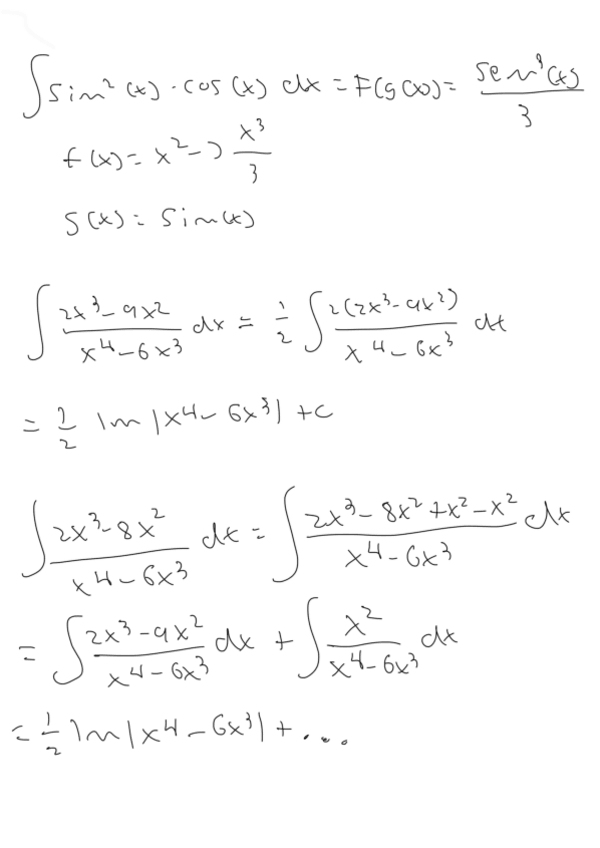 ∫ sin²(x) · cos(x) dx = F(g(x)) = sen³(x)/3
f(x) = x² → x³/3
g(x) = sin(x)
∫ (2x³ - 9x²)/(x⁴ - 6x³) dx = 1/2 ∫ 2(2x³ - 9x²)/(x⁴ - 6x³) dx
= 1/2 ln |x⁴ - 6x³| + c
∫ (2x³ - 8x²)/(x⁴ - 6x³) dx = ∫ (2x³ - 8x² + x² - x²)/(x⁴ - 6x³) dx
= ∫ (2x³ - 9x²)/(x⁴ - 6x³) dx + ∫ x²/(x⁴ - 6x³) dx
= 1/2 ln |x⁴ - 6x³| + ...